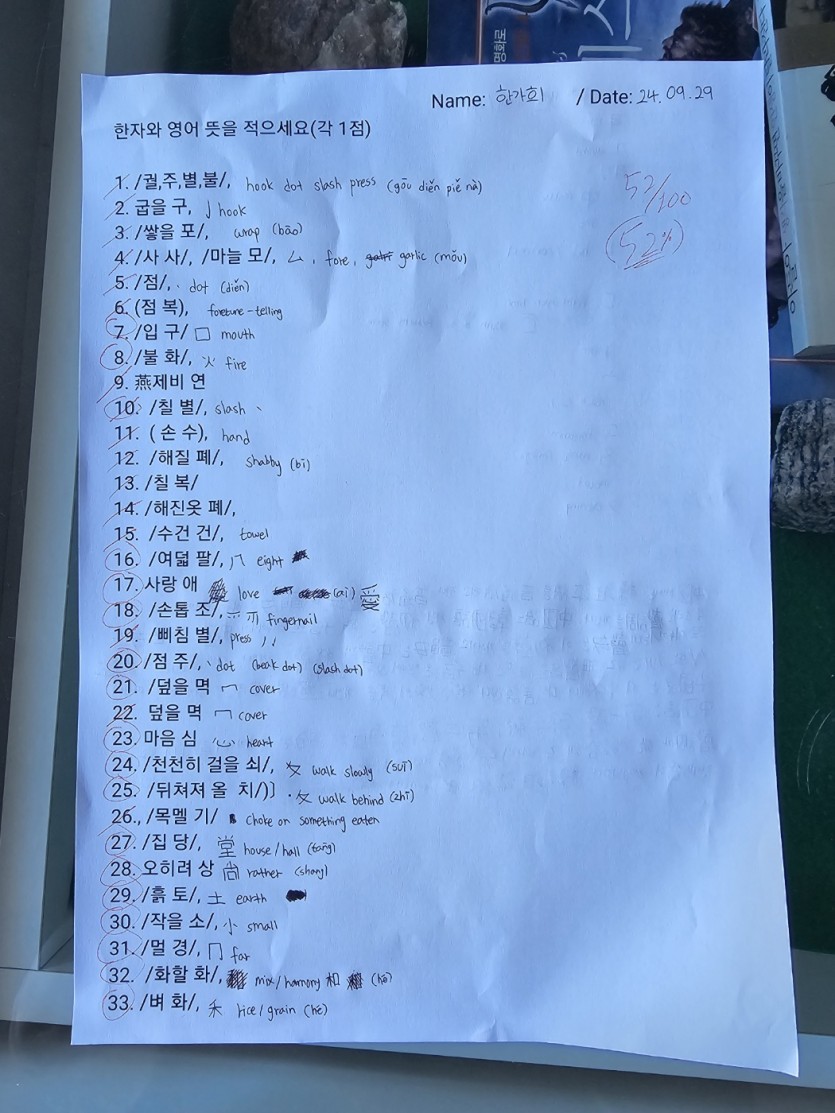 Name: 한가희 / Date: 24.09.29
한자와 영어 뜻을 적으세요(각 1점)
52/100
(52%)
1. /궐,주,별,불/, hook dot slash press (gōu diěn piě nà)
2. 굽을 구, 亅hook
3. /쌓을 포/, wrap (bāo)
4. /사 사/, /마늘 모/, ㄙ, fore, garlic (mǒu)
5. /점/, 丶 dot (diěn)
6. (점 복), foreture-telling
7. /입 구/ 口 mouth
8. /불 화/, 火 fire
9. 燕제비 연
10. /칠 별/, slash 丶
11. ( 손 수), hand
12. /해질 폐/, shabby (bī)
13. /칠 복/
14. /해진옷 폐/,
15. /수건 건/, towel
16. /여덟 팔/, 八 eight
17. 사랑 애 love (ài) 愛
18. /손톱 조/, 爫 爪 fingernail
19. /삐침 별/, press 丿丿
20. /점 주/, 丶dot (beak dot) (slash dot)
21. /덮을 멱 冖 cover
22. 덮을 멱 冖 cover
23. 마음 심 心 heart
24. /천천히 걸을 쇠/, 夊 walk slowly (suī)
25. /뒤쳐져 올 치/)〕 · 夂 walk behind (zhī)
26., /목멜 기/ choke on something eaten
27. /집 당/, 堂 house/hall (tang)
28. 오히려 상 尚 rather (shang)
29. /흙 토/, 土 earth
30. /작을 소/, 小 small
31. /멀 경/, 冂 far
32. /화할 화/, mix/harmony 和 (hē)
33. /벼 화/, 禾 rice/grain (hé)